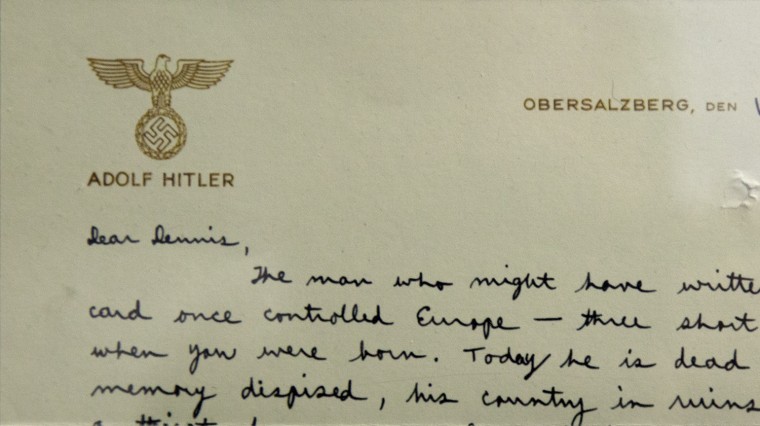 OBERSALZBERG, DEN
ADOLF HITLER
Dear Dennis,
The man who might have writte
card once controlled Europe — three short
when you were born. Today he is dead
memory dispised, his country in ruins